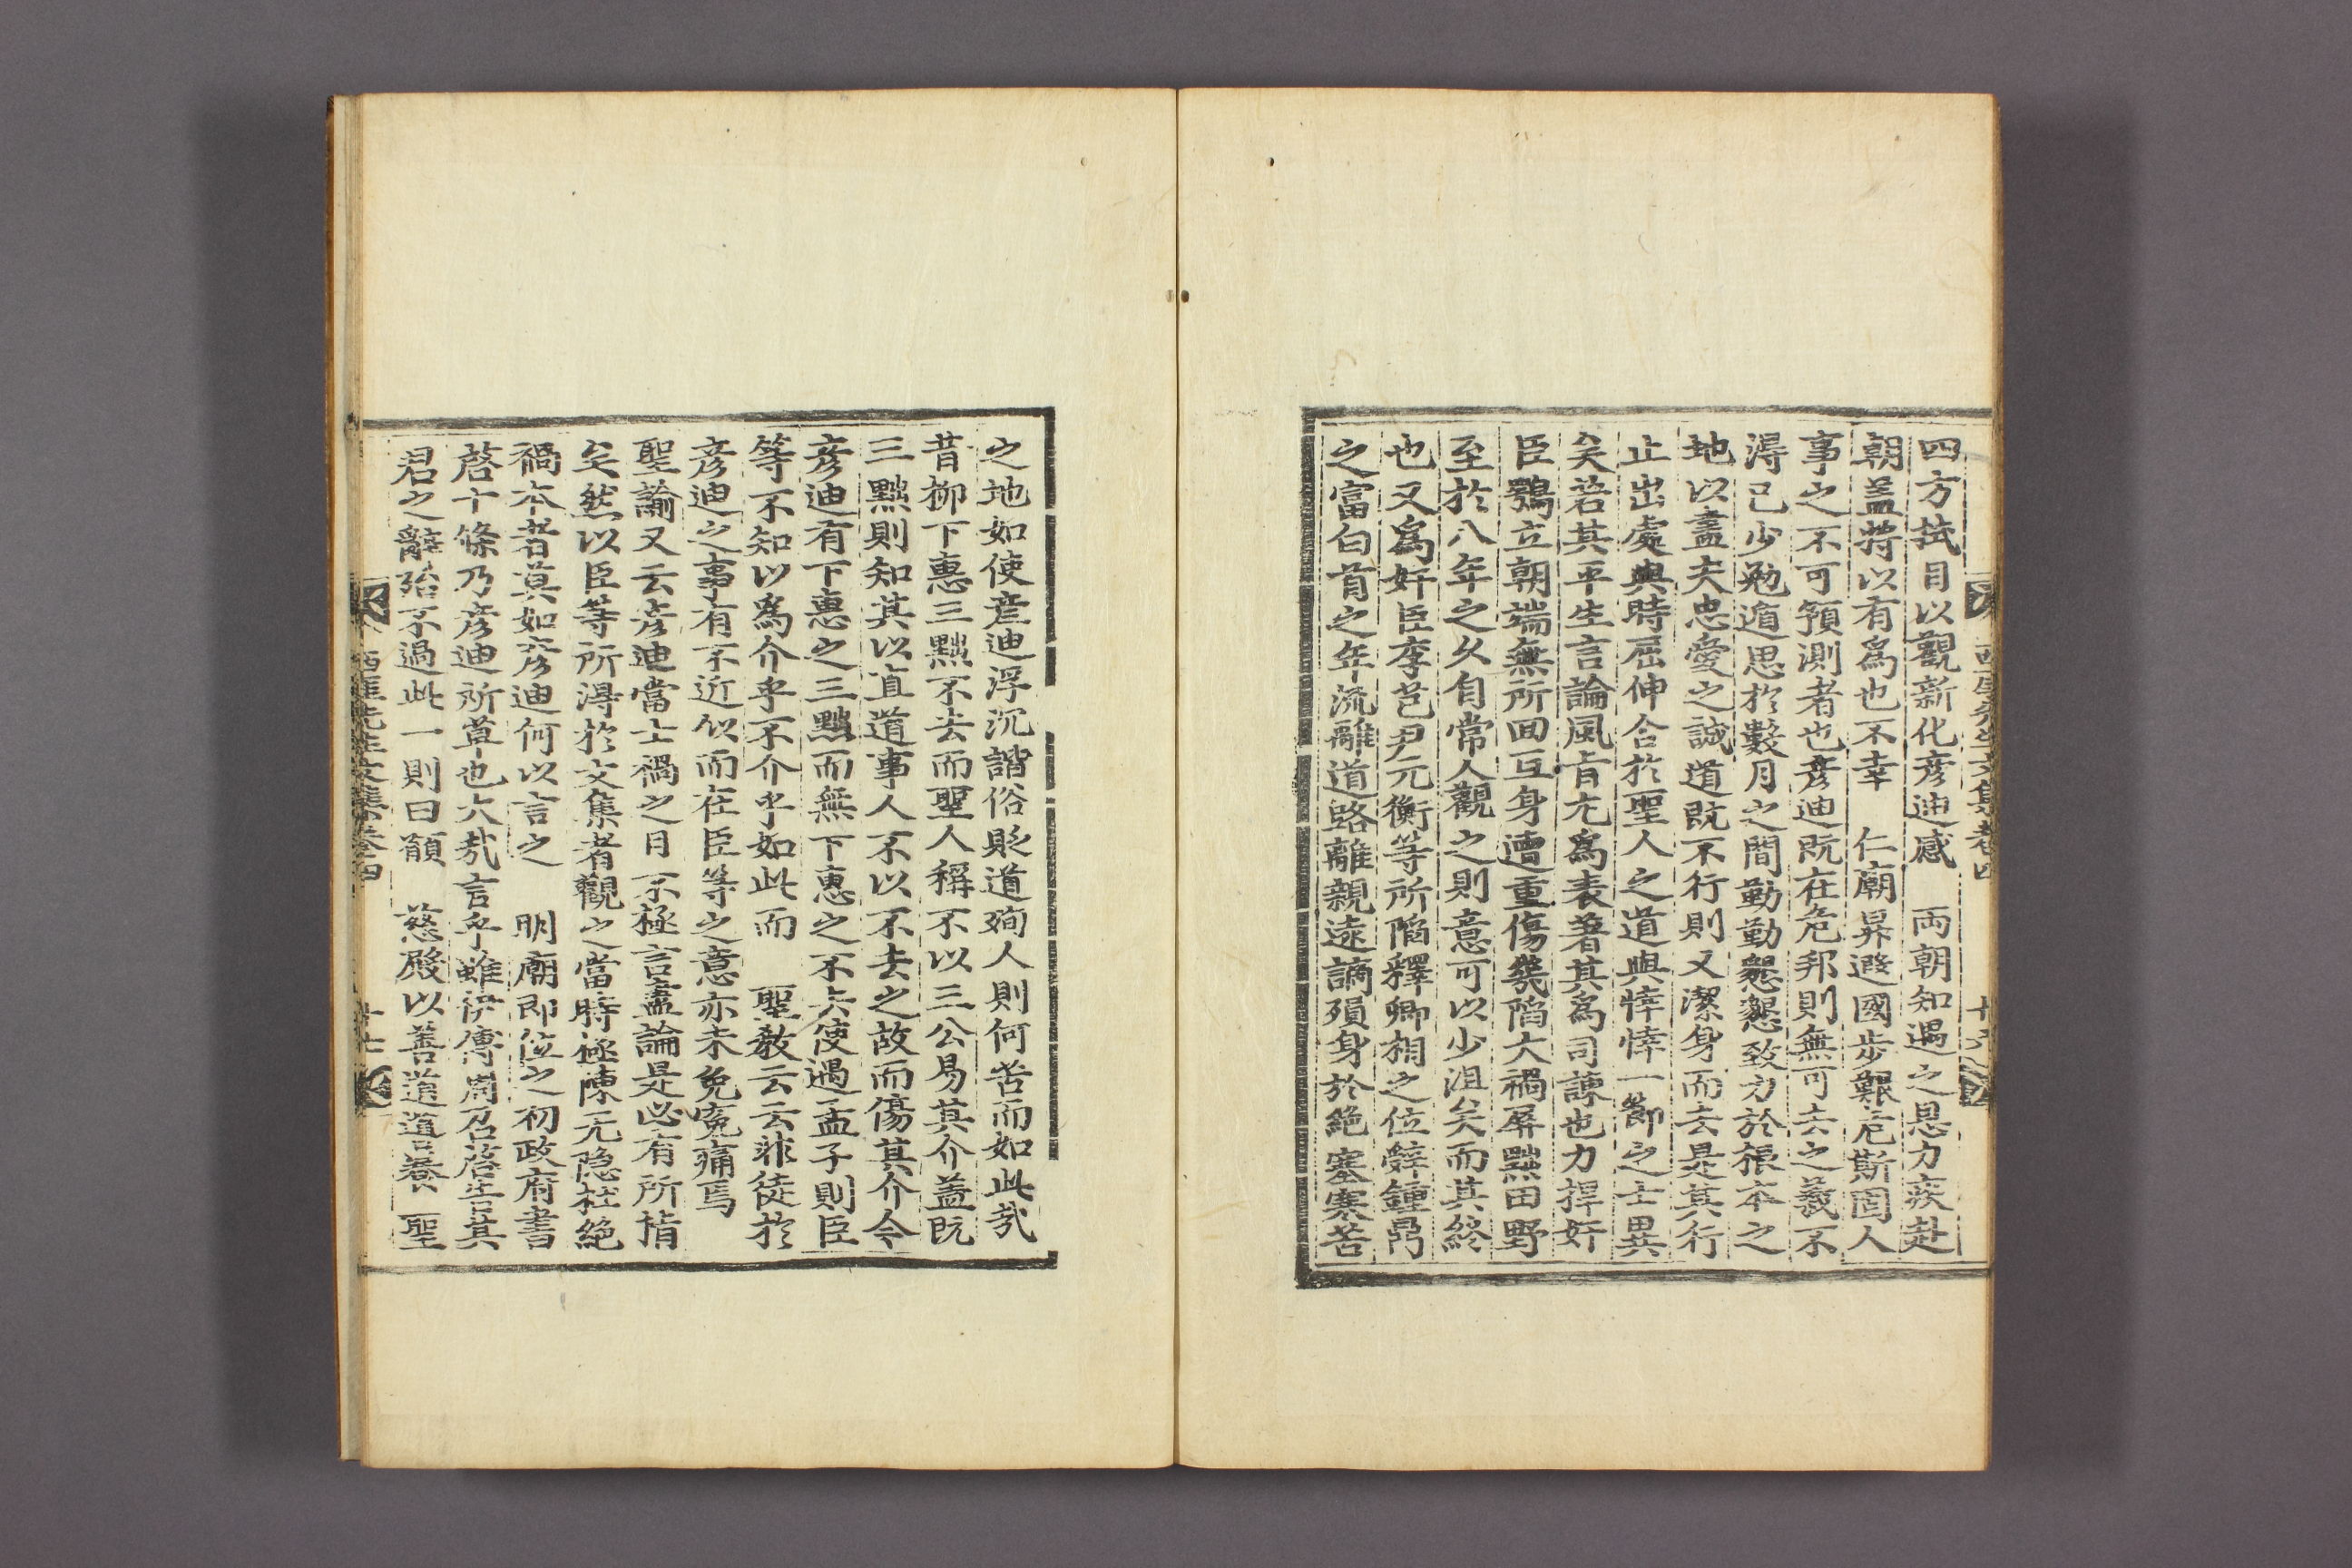 四方拭目以觀新化彦迪感 両朝知遇之恩力疾赴
朝盖將以有爲也不幸 仁廟昇遐國步艱危斯固人
事之不可預測者也彦迪旣在危邦則無可去之義不
淂已少勉遁思於數月之間勤勤懇懇致力於根本之
地以盡夫忠愛之誠道旣不行則又潔身而去是其行
止出處與時屈伸合於聖人之道與悻悻一節之士異
矣若其平生言論風旨尤爲表著其爲司諫也力捍奸
臣鶚立朝端無所回互身遭重傷幾陷大禍屏黜田野
至於八年之久自常人觀之則意可以少沮矣而其終
也又爲奸臣李芑尹元衡等所陷釋卿相之位辭鍾鼎
之富白首之年流離道路離親遠謫殞身於絶塞寒苦
西厓先生文集卷四 十六
之地如使彦迪浮沉諧俗貶道殉人則何苦而如此㢤
昔柳下惠三黜不去而聖人稱不以三公易其介盖旣
三黜則知其以直道事人不以不去之故而傷其介今
彦迪有下惠之三黜而無下惠之不去使遇孟子則臣
等不知以爲介乎不介乎如此而 聖敎云云非徒於
彦迪之事有不近似而在臣等之意亦未免寃痛焉
聖諭又云彦迪當士禍之日不極言盡論是必有所指
矣然以臣等所淂於文集者觀之當時極陳无隐杜絶
禍本者莫如彦迪何以言之 明廟即位之初政府書
啓十條乃彦迪所草也大㢤言乎雖伊傅周召啓告其
君之辭殆不過此一則曰願 慈殿以善道導養 聖
西厓先生文集卷四 十七